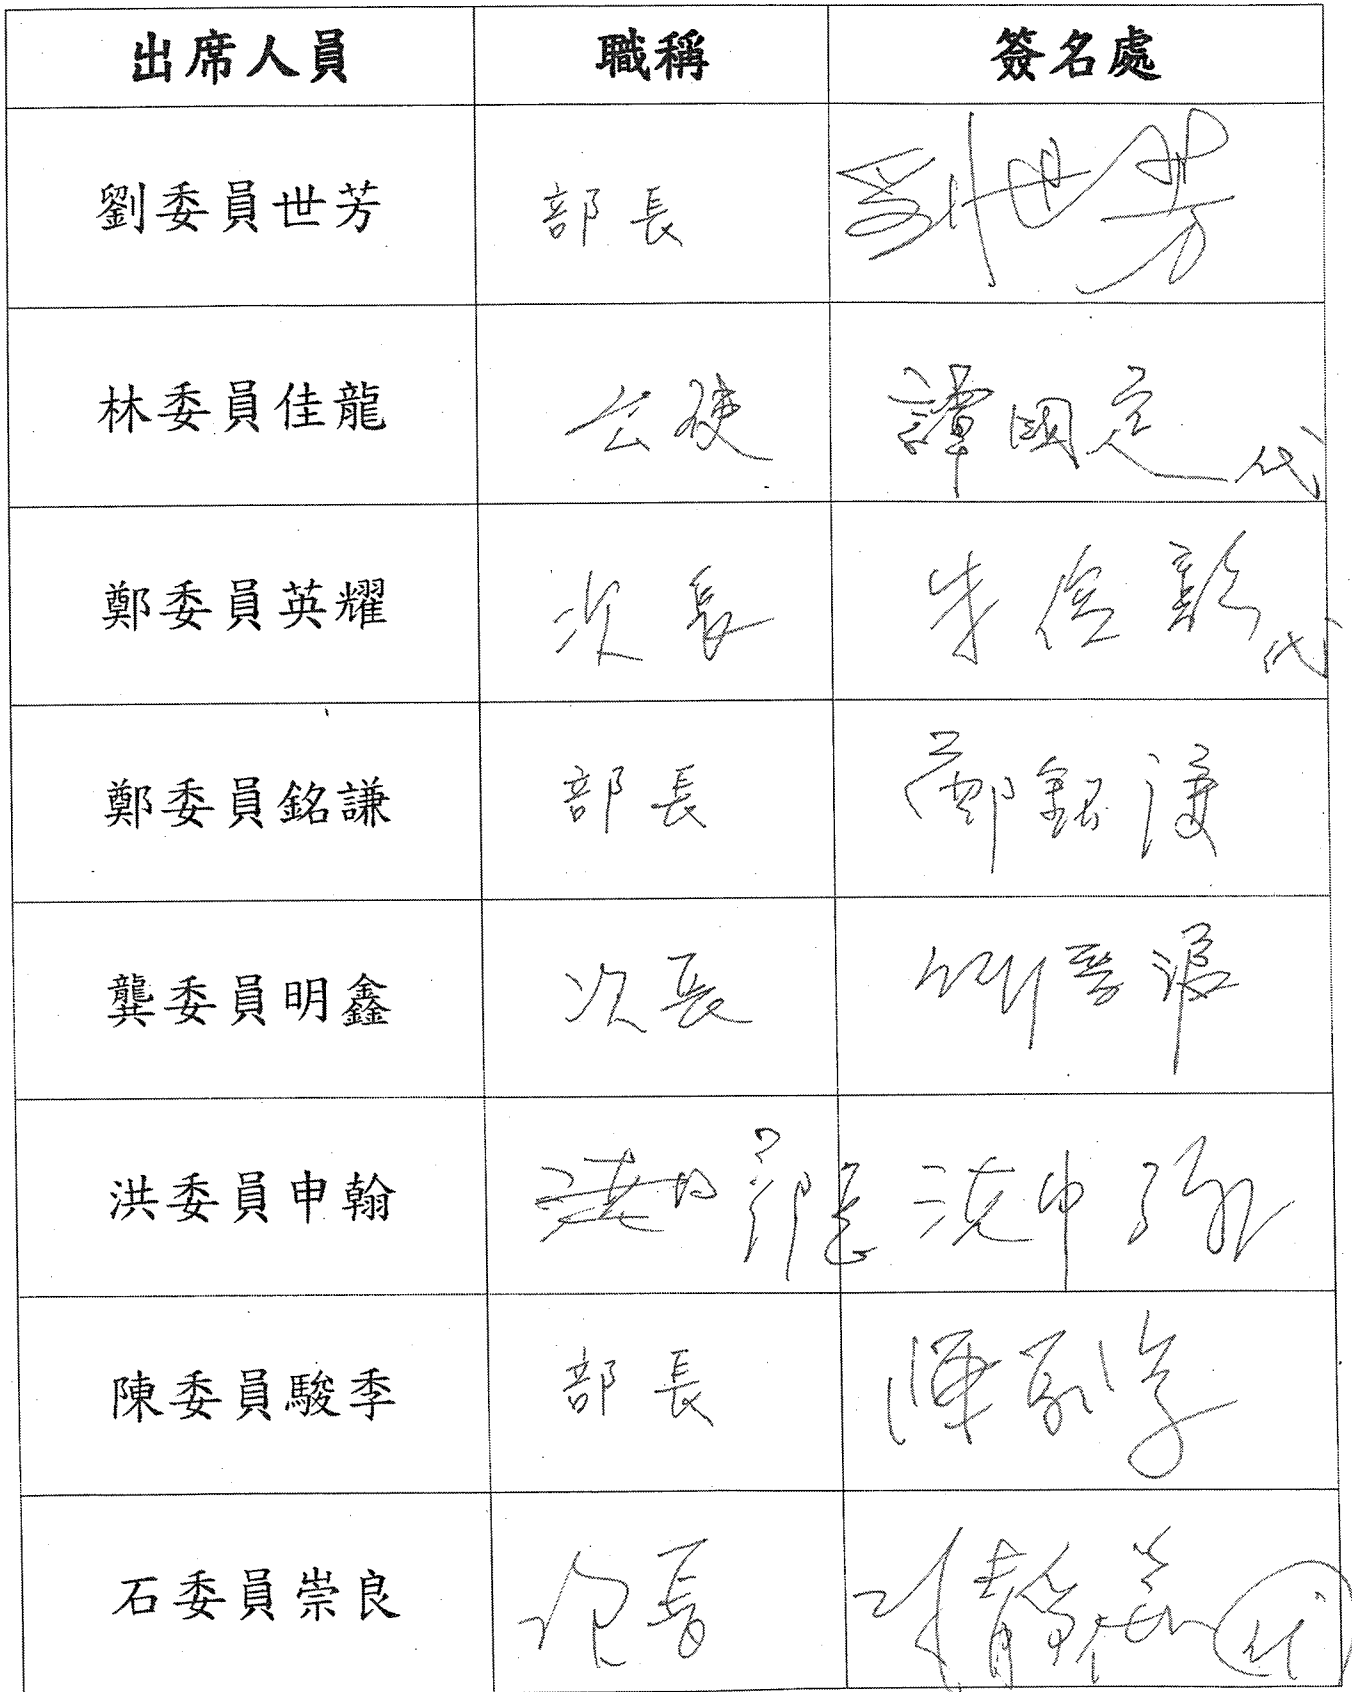 出席人員 職稱 簽名處
劉委員世芳 部長 劉世芳
林委員佳龍 公使 譚國定代
鄭委員英耀 次長 朱俊彰代
鄭委員銘謙 部長 鄭銘謙
龔委員明鑫 次長
洪委員申翰 部長 洪申翰
陳委員駿季 部長 陳駿季
石委員崇良 次長 代